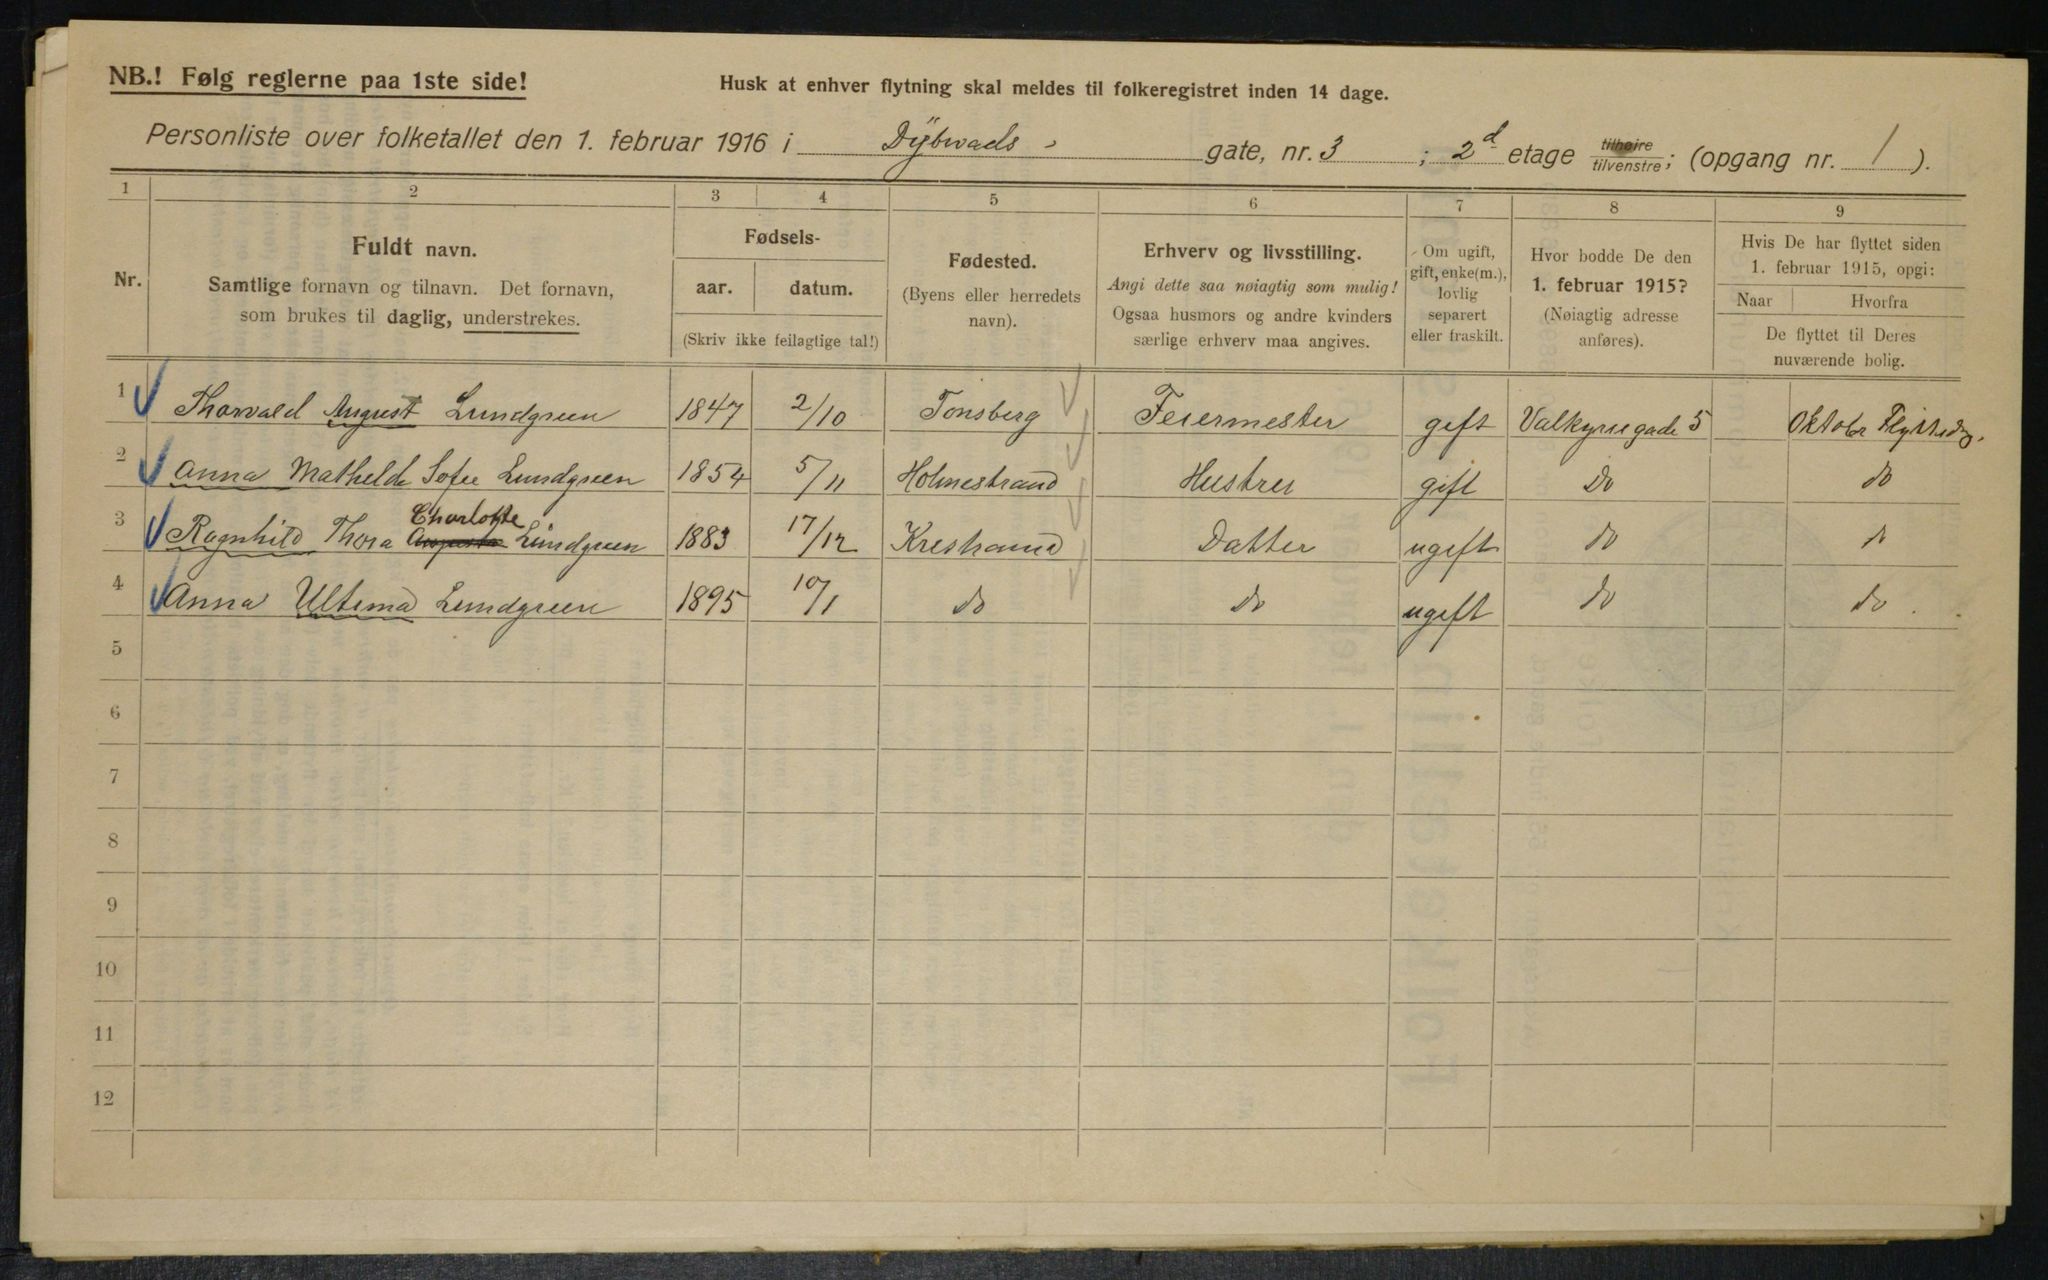 NB.! Følg reglerne paa 1ste side!
Husk at enhver flytning skal meldes til folkeregistret inden 14 dage.
Personliste over folketallet den 1. februar 1916 i Dÿbwads gate, nr. 3 ; 2d etage tilhøire tilvenstre; (opgang nr. 1 ).
1 2 3 4 5 6 7 8 9
Nr.
Fuldt navn.
Samtlige fornavn og tilnavn. Det fornavn,
som brukes til daglig, understrekes.
Fødsels-
aar. datum.
(Skriv ikke feilagtige tal!)
Fødested.
(Byens eller herredets
navn).
Erhverv og livsstilling.
Angi dette saa nøiagtig som mulig!
Ogsaa husmors og andre kvinders
særlige erhverv maa angives.
Om ugift,
gift, enke(m.),
lovlig
separert
eller fraskilt.
Hvor bodde De den
1. februar 1915?
(Nøiagtig adresse
anføres).
Hvis De har flyttet siden
1. februar 1915, opgi:
Naar Hvorfra
De flyttet til Deres
nuværende bolig.
1 Thorvald August Lundgreen 1847 2/10 Tonsberg Feiermester gift Valkyriegade 5 Oktobr Flyttedag.
2 Anna Mathelde Sofie Lundgreen 1854 5/11 Holmestrand Hustru gift Do do
Charlotte
3 Ragnhild Thora Augusta Lundgreen 1883 17/12 Krestiania Datter ugift do do
4 Anna Ultima Lundgreen 1895 10/1 do do ugift do do.
5
6
7
8
9
10
11
12